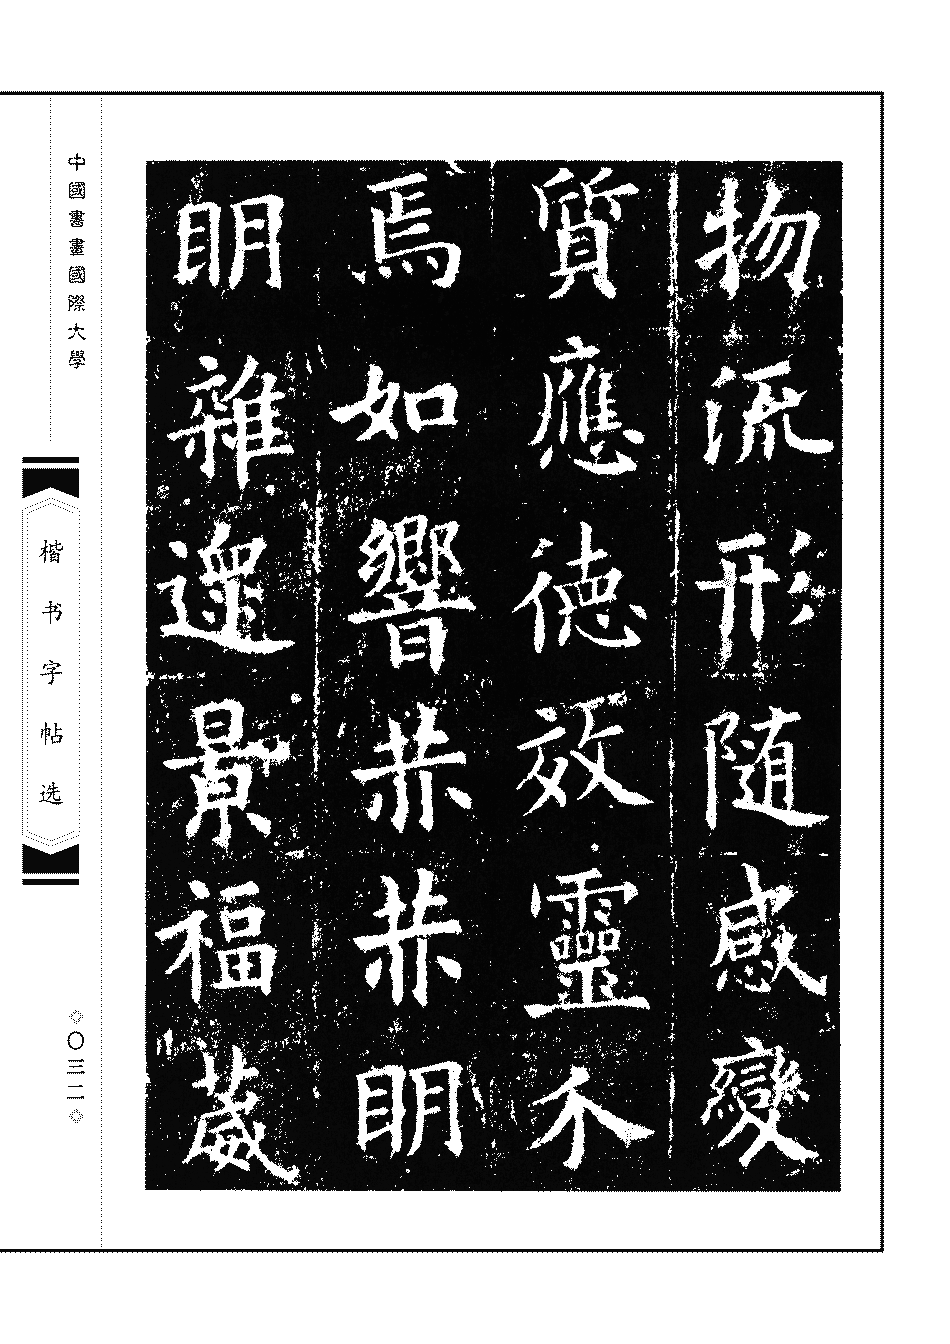 物流形随感變
質應徳效靈介
焉如響赫赫眀
眀雜遝景福葳
中國書畫國際大學
楷书字帖选
◇〇三二◇